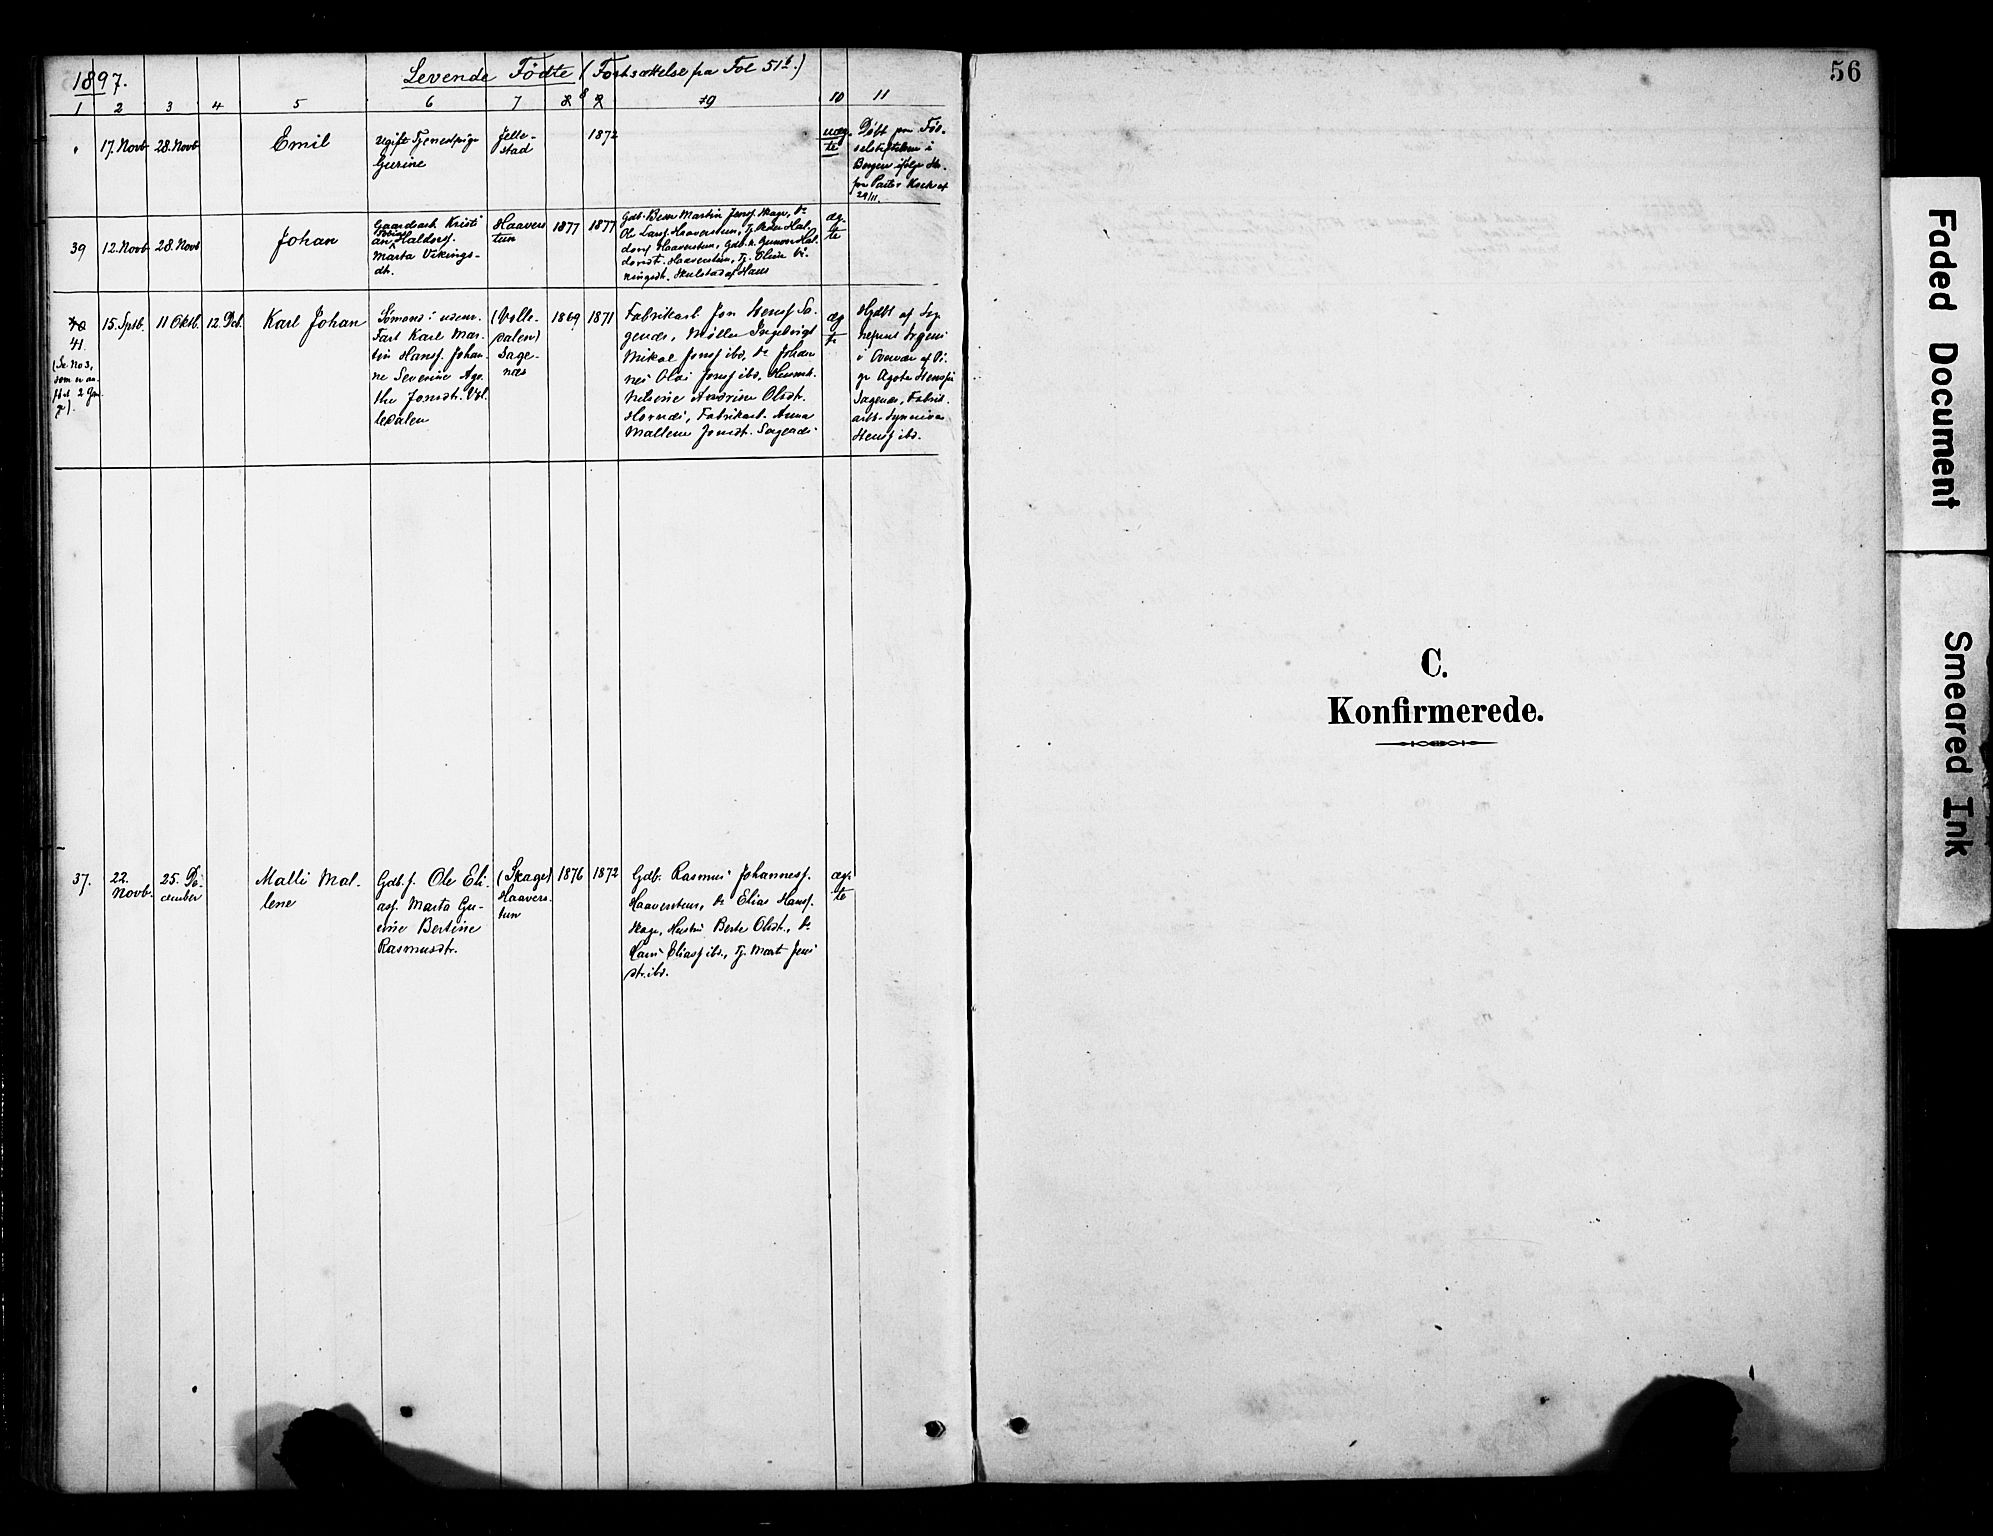 1897.
Levende Fødte (Fortsættelse fra Fol 51b.)
1 2 3 4 5 6 7 8 9 10 11
17. Novb 28. Novb Emil
ugift Tjenestpige
Gurine
Jelle-
stad
1872
uæg-
te
Døbt paa Fød-
selsstiftelsen i
Bergen ifølge
fra Pastor
29/11.
39 12. Novb 28. Novb Johan
Gaardsarb Kristi
an Haldorsf.
Marta Vikings-
dt.
Haavers
tun
1877 1877
Gdb. Martin Jensf. Skage, Do
Ole Larsf. Haaverstun, Tj. Peder Hal,
dorsf Haaverstun, Gdb. k. Gunnor Hal
dorsdt. Haaverstun, Tj. Oline Vi-
kingsdt. Skulstad af Haus
æg-
te
40
41.
(Se No 3,
som er an-
ført 2 Gan
ge).
15. Sptb. 11 Oktb. 12. Dcb. Karl Johan
Sømand i udenr.
Fart Karl Mar-
tin Hansf. Johan-
ne Severine Aga-
the Jonsdt. Vol
ledalen
(Volle-
dalen)
Sage-
næs
1869 1871
Fabrikarb Jon Stensf Sa-
genæs, Møller Ingebrigt
Mikal Jonsf ibd, Do Johan
nes Olai Jonsf ibd,
Nilsine Andrine Olsdt.
Fabrikarb. Anna
Mallene Jonsdt. Sagenæs
æg
te
Hjdbt af
i Overvær af Pi-
ge Agota
Sagenæs, Fabrik
arb. Synneva
ibd.
37. 22.
Novb.
25. De-
cember
Malli Mal-
lene
Gdb. f. Ole Eli-
asf. Marta Gu-
rine Bertine
Rasmusdtr.
(Skage)
Haavers-
tun
1876 1872
Gdb. Rasmus Johannesf.
Haaverstun, Do Elias Hansf.
Skage, Hustru Berte Olsdt., Do
Hans Eliasf ibd., Tj. Mart Jens
dtr. ibd.
æg-
te
56
C.
Konfirmerede.
Faded Document
Smeared Ink